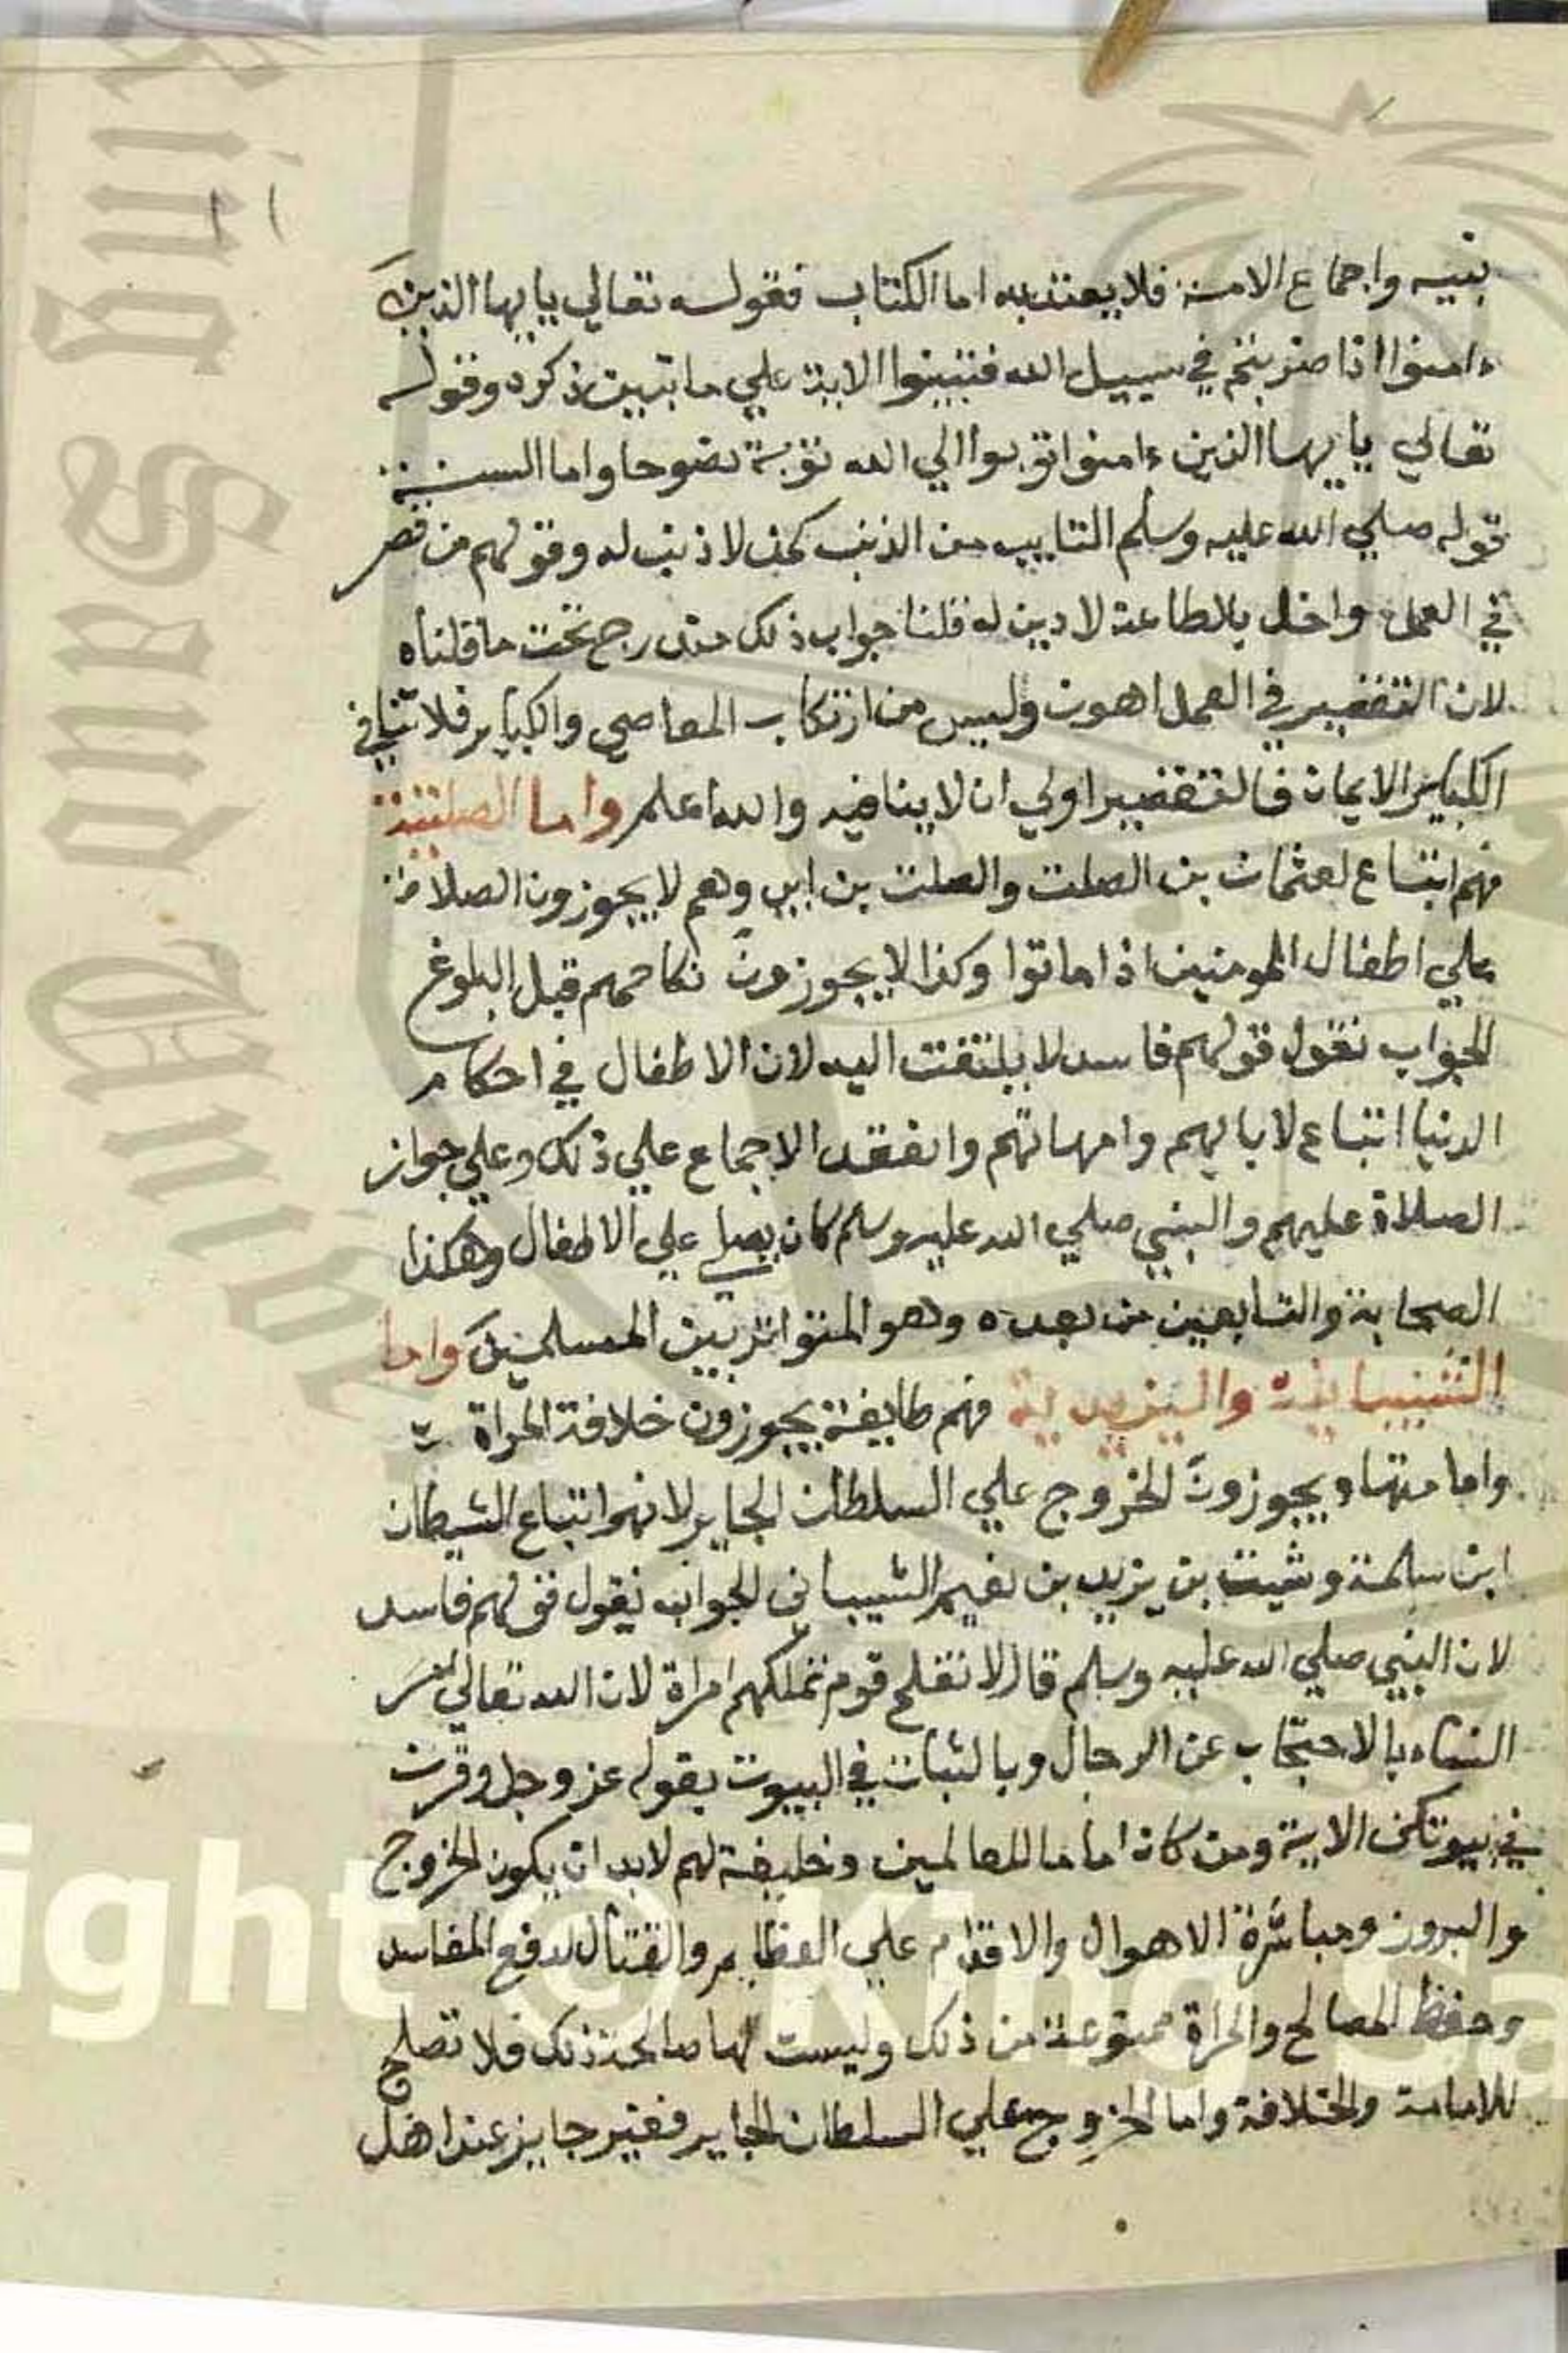 نبيه واجماع الامة فلا يعتد به اما الكتاب فقوله تعالي يايها الذين
ءامنوا اذا ضربتم في سبيل الله فتبينوا الاية علي ما تبين ذكره وقوله
تعالي يايها الذين ءامنوا توبوا الي الله توبة نصوحا واما السنة
قوله صلي الله عليه وسلم التايب من الذنب كمن لا ذنب له وقولهم من قصر
في العمل واخل بالطاعة لا دين له قلنا جواب ذلك مندرج تحت ما قلناه
لان التقصير في العمل اهون وليس من ارتكاب المعاصي والكباير فلا تنافي
الكباير الايمان فالتقصير اولي ان لا ينافيه والله اعلم واما الصلتية
فهم اتباع لعثمان بن الصلت والصلت بن ابي وهم لا يجوزون الصلاة
علي اطفال المومنين اذا ماتوا وكذا لا يجوزون نكاحهم قبل البلوغ
الجواب نقول قولهم فاسد لا يلتفت اليه لان الاطفال في احكام
الدنيا اتباع لابايهم وامهاتهم وانعقد الاجماع علي ذلك وعلي جواز
الصلاة عليهم والنبي صلي الله عليه وسلم كان يصلي علي الاطفال وهكذا
الصحابة والتابعين من بعده وهو المتواتر بين المسلمين واما
الشيبانية واليزيدية فهم طايفة يجوزون خلافة المراة
وامامتها ويجوزون الخروج علي السلطان الجاير لانهم اتباع الشيطان
ابن سلمة وشيت بن يزيد بن نعيم الشيباني الجواب نقول قولهم فاسد
لان النبي صلي الله عليه وسلم قال لا تفلح قوم تملكهم امراة لان الله تعالي امر
النساء بالاحتجاب عن الرجال وبالثبات في البيوت بقوله عز وجل وقرن
في بيوتكن الاية ومن كان اماما للعالمين وخليفة لهم لابد ان يكون الخروج
والبروز ومباشرة الاهوال والاقدام علي العظايم والقتال لدفع المفاسد
وحفظ المصالح والمراة ممنوعة من ذلك وليست لها صالحة ذلك فلا تصلح
للامامة والخلافة واما الخروج علي السلطان الجاير فغير جايز عند اهل
ight © King Sa
King Saud Univ